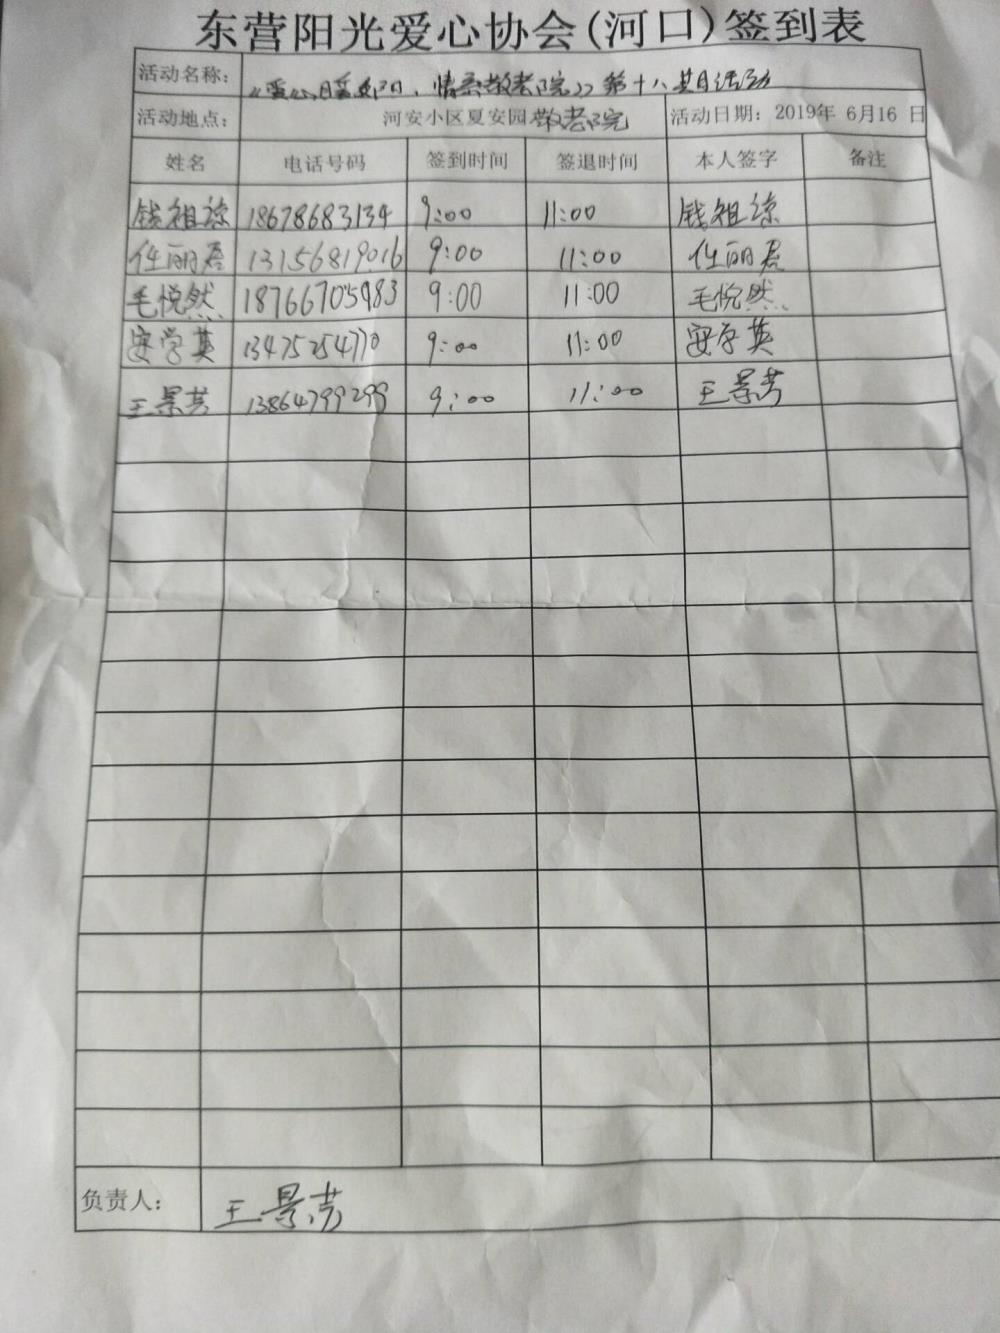 东营阳光爱心协会(河口)签到表
活动名称： 《爱心暖夕阳、情系敬老院》第十八期活动
活动地点： 河安小区夏安园敬老院 活动日期：2019年 6月16 日
姓名 电话号码 签到时间 签退时间 本人签字 备注
钱祖 18678683134 9:00 11:00 钱祖
任丽君 13156819016 9:00 11:00 任丽君
毛悦然 18766705983 9:00 11:00 毛悦然
安学英 13475254770 9:00 11:00 安学英
王景芳 13864799299 9:00 11:00 王景芳
负责人： 王景芳